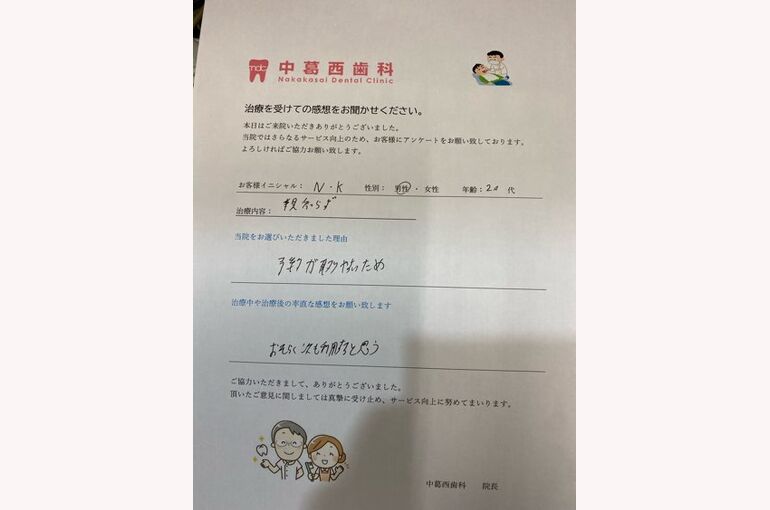 ndc 中葛西歯科
Nakakasai Dental Clinic
治療を受けての感想をお聞かせください。
本日はご来院いただきありがとうございました。
当院ではさらなるサービス向上のため、お客様にアンケートをお願い致しております。
よろしければご協力お願い致します。
お客様イニシャル： N・K 性別： 男性 ・ 女性 年齢：20 代
治療内容： 親知らず
当院をお選びいただきました理由
予約が取りやすいため
治療中や治療後の率直な感想をお願い致します
おそらく次も利用すると思う
ご協力いただきまして、ありがとうございました。
頂いたご意見に関しましては真摯に受け止め、サービス向上に努めてまいります。
中葛西歯科 院長